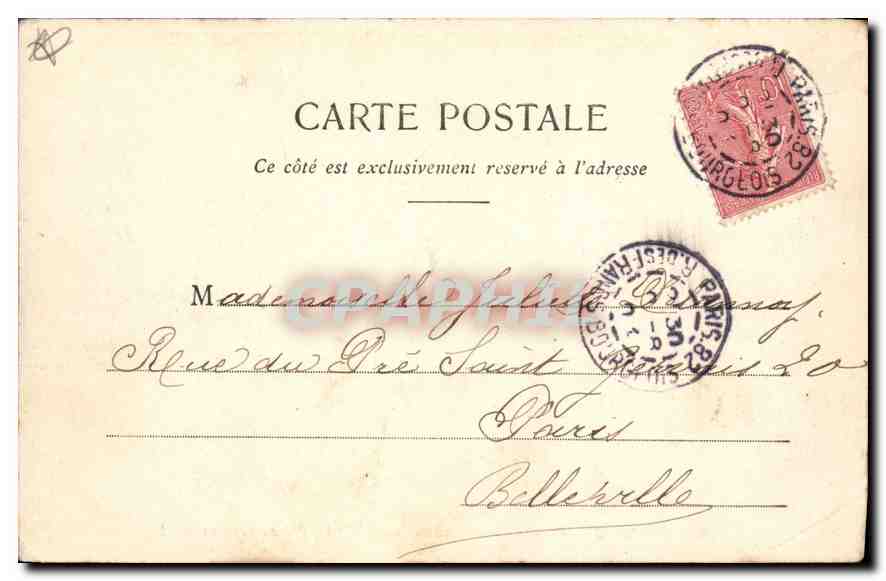 CARTE POSTALE
Ce côté est exclusivement reservé à l'adresse
PARIS.82
BOURGEOIS
Mademoiselle Juliette
Rue du Pré Saint Gervais 20
Paris
Belleville
PARIS.82
R. DES FRANCS BOURGEOIS
CPAPHIL